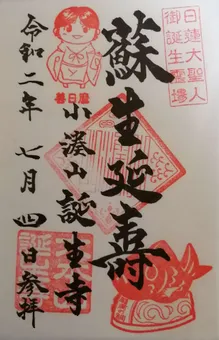 日蓮大聖人
御誕生霊場
蘇生延寿
善日麿
小湊山誕生寺
令和二年七月四日参拝